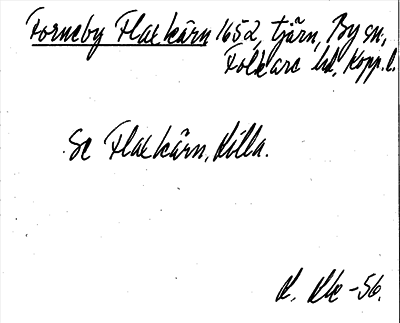 Forneby Flaxkärn 1652, tjärn, By sn,
Folkare hd, Kopp. l.
Se Flaxkärn, Lilla.
-56.